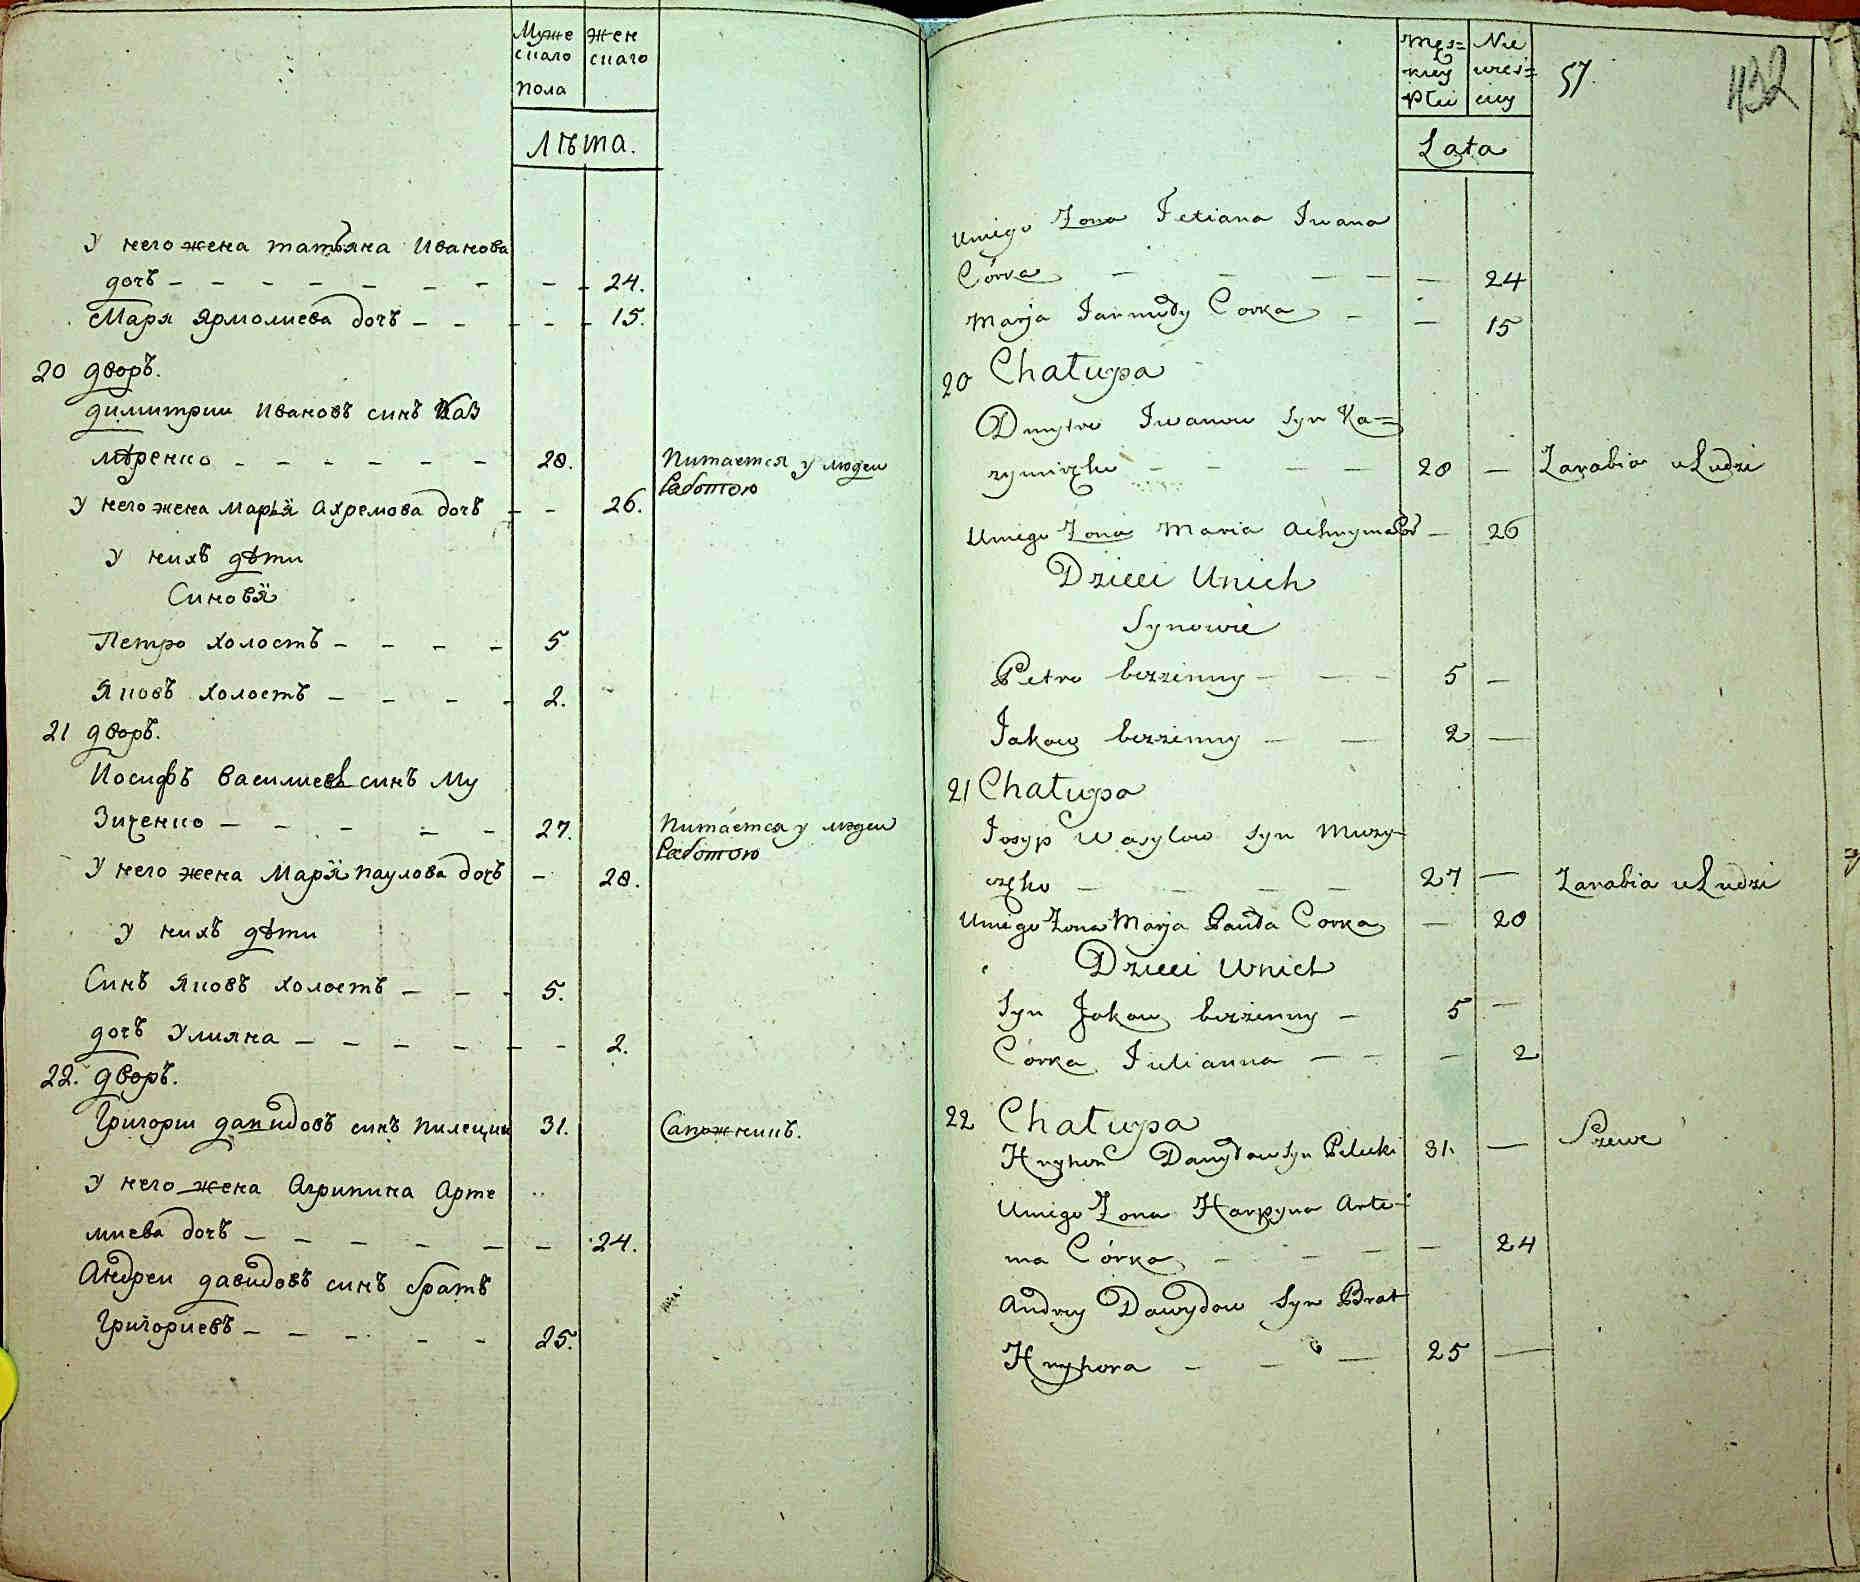 Муже Жен
скаго скаго
пола
Лѣта.
У него жена татьяна Иванова
дочь 24.
Маря Ярмолиева дочь 15.
20 дворъ.
димитрии Ивановъ синъ Каз
мѣренко 28. Питается у людеи
работою
У него жена Маръя Ахремова дочь 26.
У нихъ дѣти
Синовя
Петро холостъ 5
Яковъ холостъ 2.
21 дворъ.
Иосифъ Василиевъ синъ Му
зиченко 27. Питается у людеи
работою
У него жена Маря паулова дочь 28.
У нихъ дѣти
Синъ Яковъ холостъ 5.
дочъ Улияна 2.
22. дворъ.
Григории давидовъ синъ пилецки 31. Сапожникъ.
У него жена Агрипина Арте
миева дочъ 24.
Андреи давидовъ синъ братъ
Григориевъ 25.
Męs= Nie
kiey wies=
Płci ciey
57. 432
Lata
Uniego Żona Tetiana Iwana
Córka 24
Marja Corka 15
20 Chałupa
Dmytro Iwanow Syn Ka=
28 Zarabia u Ludzi
Uniego Żona Maria 26
Dzieci Unich
Synowie
Petro bezżenny 5
Jakow bezżenny 2
21 Chałupa
Josyp Wasylow Syn Muzy=
27 Zarabia u Ludzi
Uniego Żona Marja Corka 28
Dzieci Unich
Syn Jakow bezżenny 5
Córka Julianna 2
22 Chałupa
Hryhor Dawydow Syn Pilecki 31. Szewc
Uniego Żona Harpyna Arte=
ma Córka 24
Andrey Dawydow Syn Brat
Hryhora 25